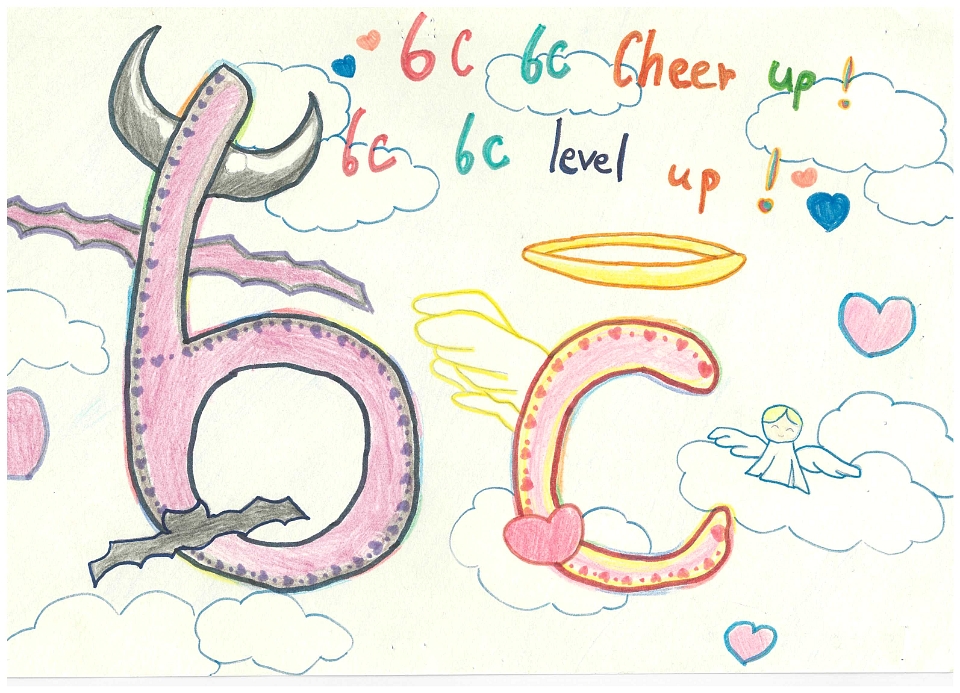 6C 6C Cheer up!
6C 6C level up!
6C